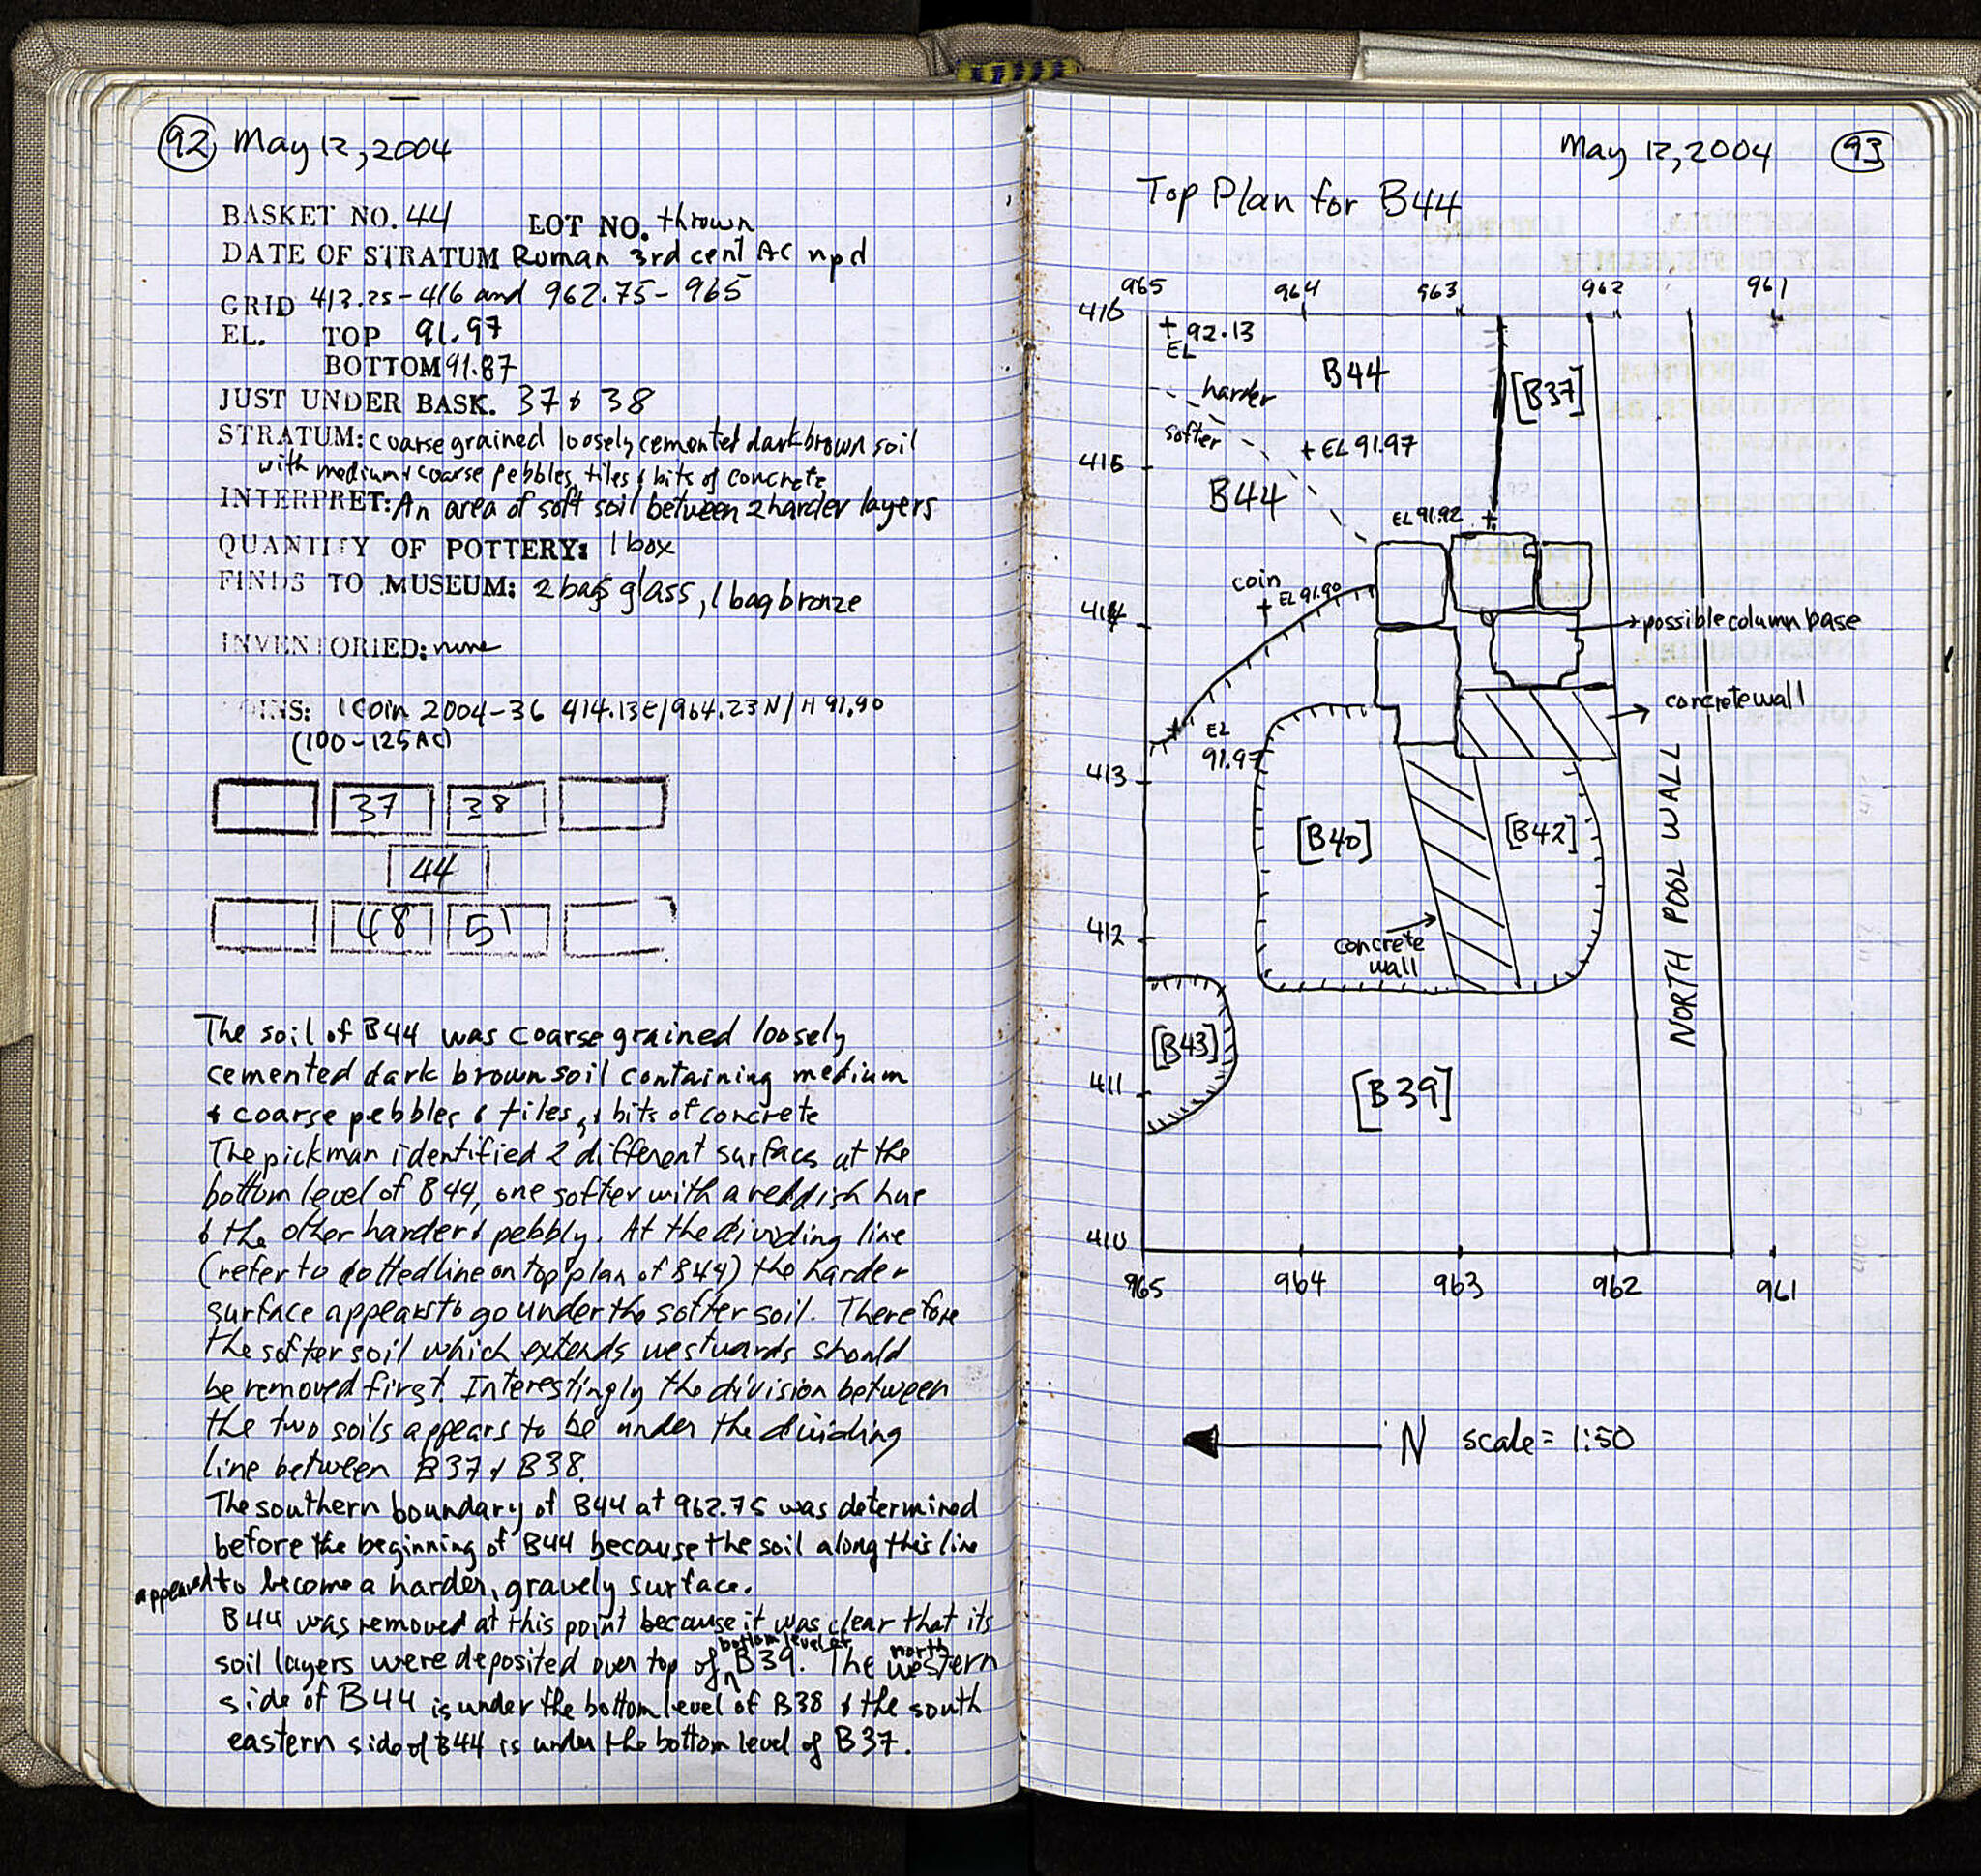 92 May 12, 2004
BASKET NO. 44 LOT NO. thrown
DATE OF STRATUM Roman 3rd cent AC npd
GRID 413.25-416 and 962.75-965
EL. TOP 91.97
BOTTOM 91.87
JUST UNDER BASK. 37 & 38
STRATUM: coarse grained loosely cemented dark brown soil
with medium & coarse pebbles, tiles & bits of concrete
INTERPRET: An area of soft soil between 2 harder layers
QUANTITY OF POTTERY: 1 box
FINDS TO MUSEUM: 2 bags glass, 1 bag bronze
INVENTORIED: none
COINS: 1 coin 2004-36 414.13E/964.23N/H 91.90
(100-125AC)
37 38
44
48 51
The soil of B44 was coarse grained loosely
cemented dark brown soil containing medium
& coarse pebbles & tiles, & bits of concrete
The pickman identified 2 different surfaces at the
bottom level of B44, one softer with a reddish hue
& the other harder & pebbly. At the dividing line
(refer to dotted line on top plan of B44) the harder
surface appears to go under the softer soil. Therefore
the softer soil which extends westwards should
be removed first. Interestingly the division between
the two soils appears to be under the dividing
line between B37 & B38.
The southern boundary of B44 at 962.75 was determined
before the beginning of B44 because the soil along this line
appeared to become a harder, gravely surface.
B44 was removed at this point because it was clear that its
soil layers were deposited over top of bottom level of B39. The north western
side of B44 is under the bottom level of B38 & the south
eastern side of B44 is under the bottom level of B37.
May 12, 2004 93
Top Plan for B44
965 964 963 962 961
416
+ 92.13
EL
B44
[B37]
harder
softer
+ EL 91.97
415
B44
EL 91.92 +
coin
+ EL 91.90
414
possible column base
concrete wall
EL
91.97
413
[B40]
[B42]
NORTH POOL WALL
412
concrete
wall
[B43]
411
[B39]
410
965 964 963 962 961
N scale = 1:50